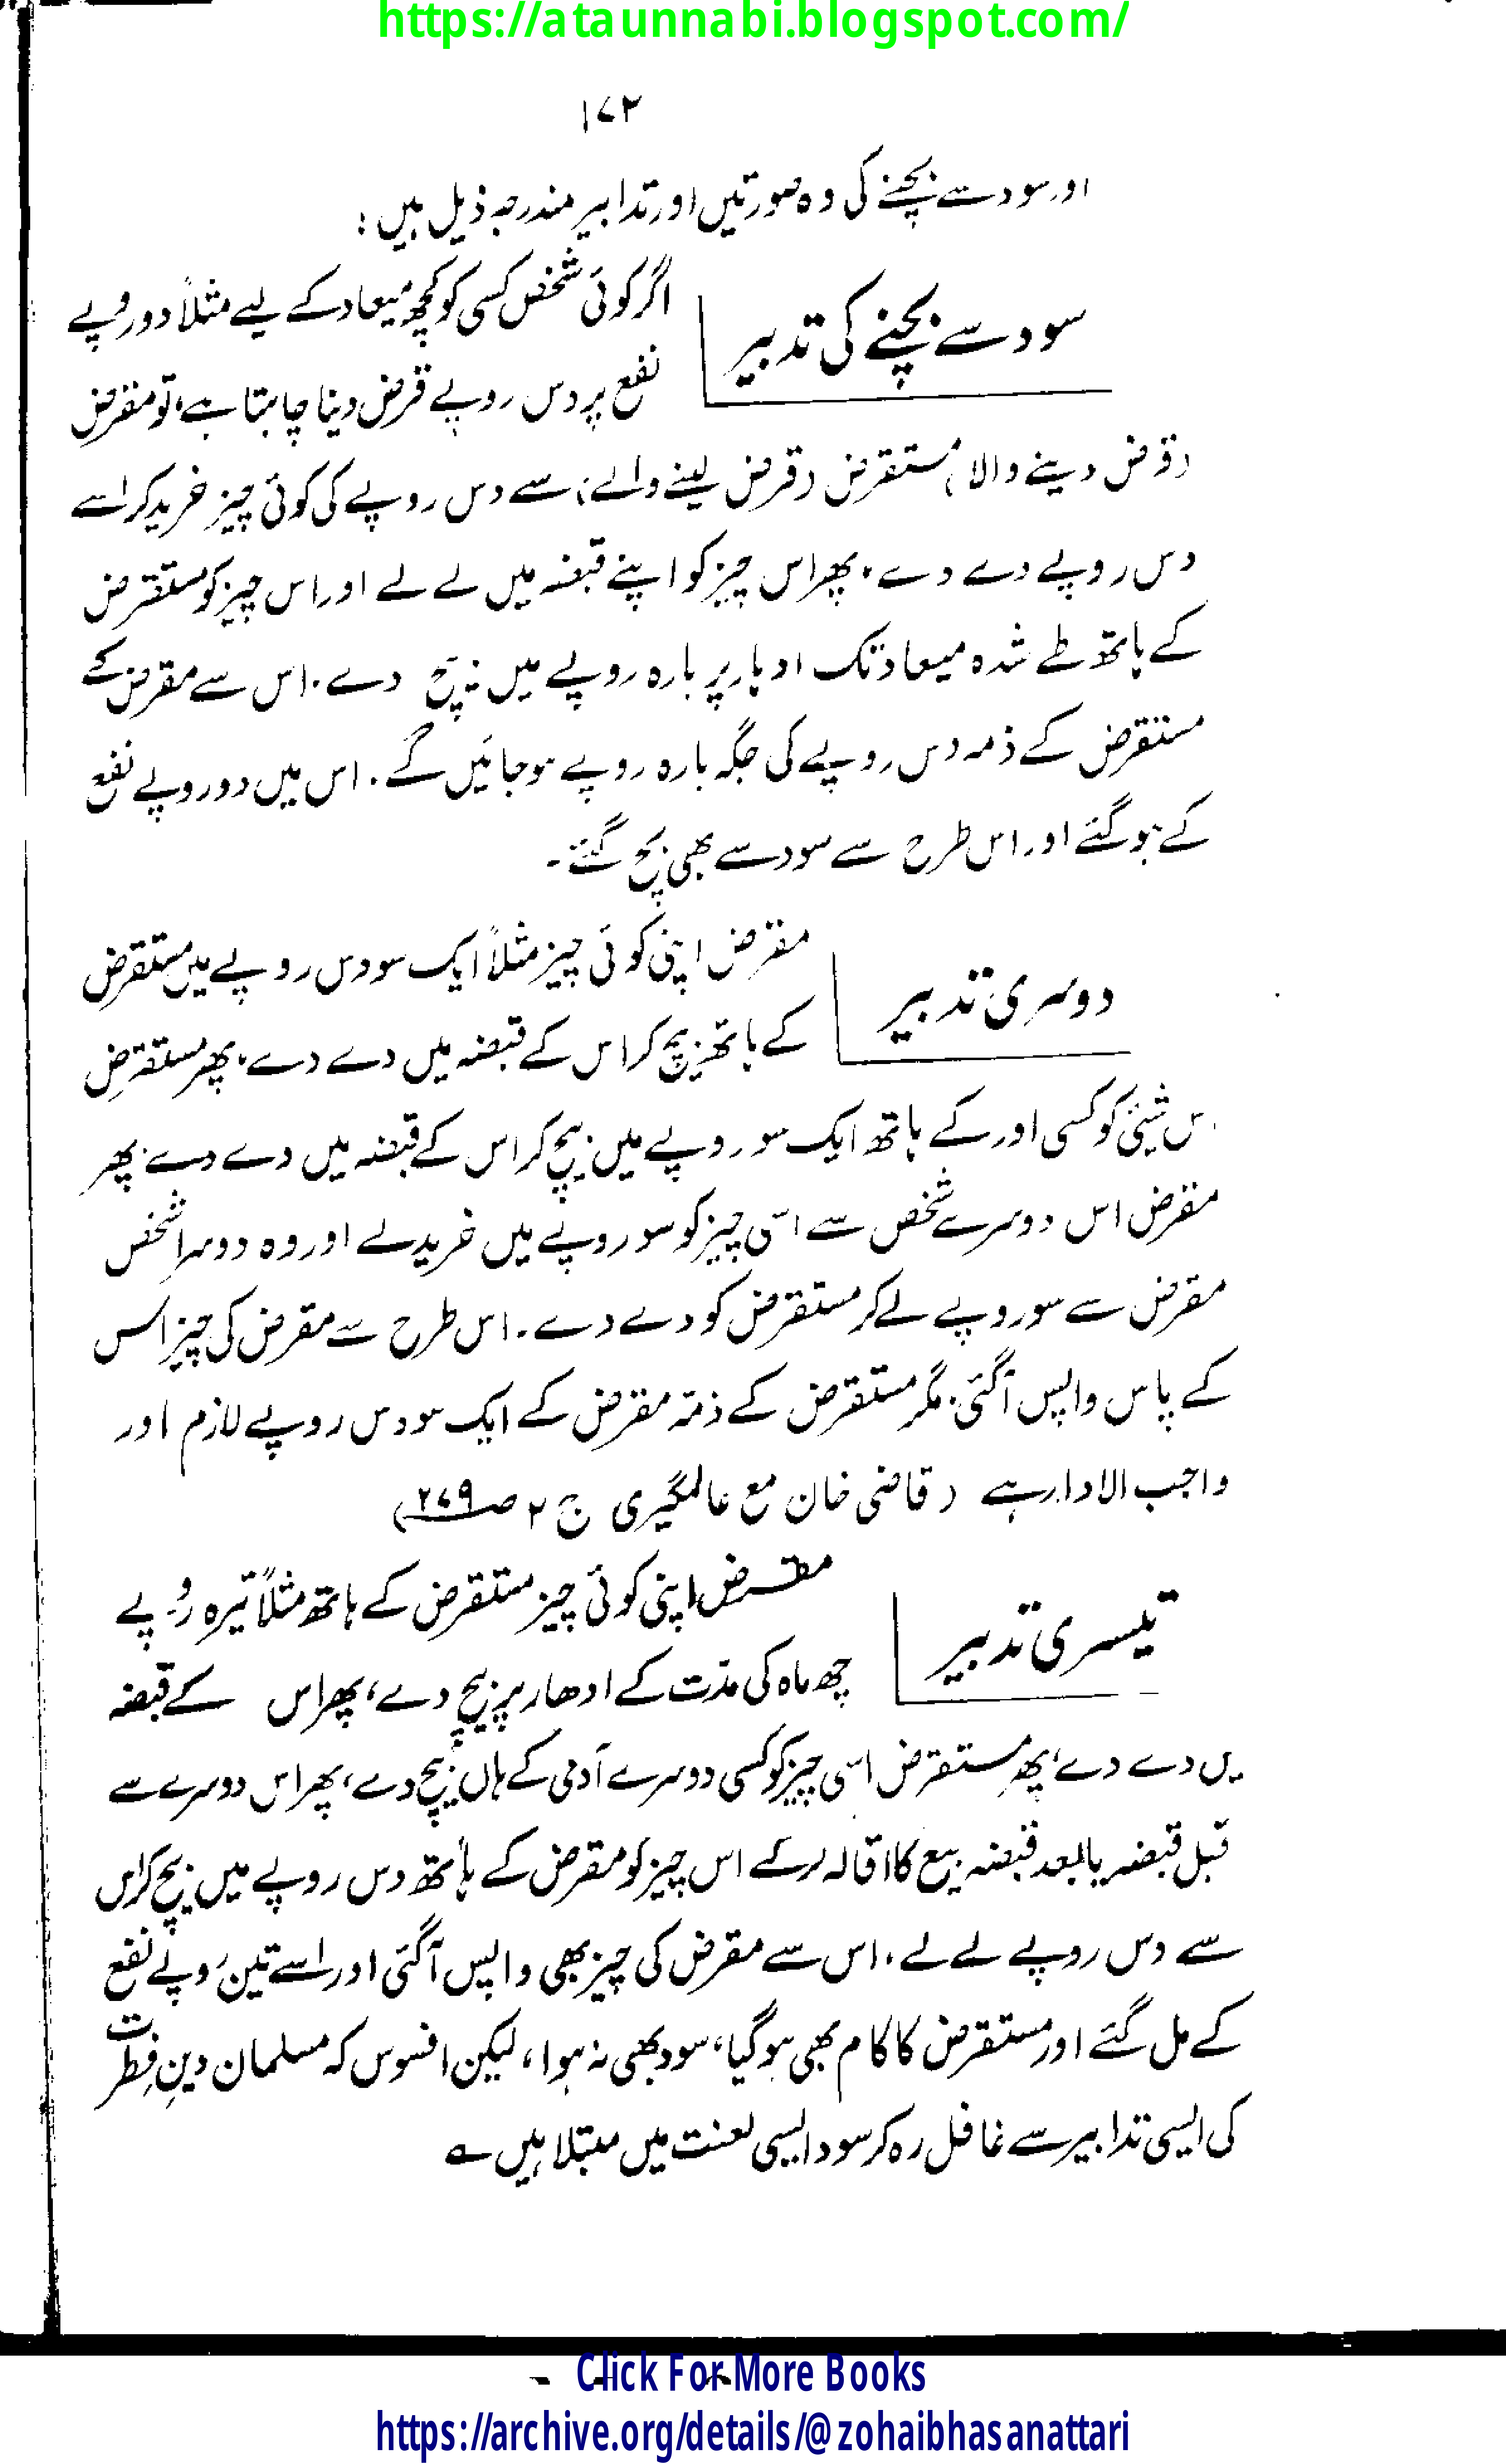 https://ataunnabi.blogspot.com/
۱۷۲
اور سود سے بچنے کی وہ صورتیں اور تدابیر مندرجہ ذیل ہیں :
سود سے بچنے کی تدبیر
اگر کوئی شخص کسی کو کچھ میعاد کے لیے مثلاً دو روپے
نفع پر دس روپے قرض دینا چاہتا ہے، تو مقرض
(قرض دینے والا) مستقرض (قرض لینے والے) سے دس روپے کی کوئی چیز خرید کر اسے
دس روپے دے دے، پھر اس چیز کو اپنے قبضہ میں لے لے اور اس چیز کو مستقرض
کے ہاتھ طے شدہ میعاد تک ادہار پر بارہ روپے میں بیچ دے۔ اس سے مقرض کے
مستقرض کے ذمہ دس روپے کی جگہ بارہ روپے ہو جائیں گے۔ اس میں دو روپے نفع
کے ہو گئے اور اس طرح سے سود سے بھی بچ گئے۔
دوسری تدبیر
مقرض اپنی کوئی چیز مثلاً ایک سو دس روپے میں مستقرض
کے ہاتھ بیچ کر اس کے قبضہ میں دے دے، پھر مستقرض
اس شیئی کو کسی اور کے ہاتھ ایک سو روپے میں بیچ کر اس کے قبضہ میں دے دے، پھر
مقرض اس دوسرے شخص سے اسی چیز کو سو روپے میں خرید لے اور وہ دوسرا شخص
مقرض سے سو روپے لے کر مستقرض کو دے دے۔ اس طرح سے مقرض کی چیز اس
کے پاس واپس آگئی، مگر مستقرض کے ذمّہ مقرض کے ایک سو دس روپے لازم اور
واجب الادا رہے (قاضی خان مع عالمگیری ج ۲ صـ ۲۷۹)
تیسری تدبیر
مقرض اپنی کوئی چیز مستقرض کے ہاتھ مثلاً تیرہ روپے
چھ ماہ کی مدّت کے ادھار پر بیچ دے، پھر اس کے قبضہ
میں دے دے، پھر مستقرض اسی چیز کو کسی دوسرے آدمی کے ہاں بیچ دے، پھر اس دوسرے سے
قبل قبضہ یا بعد قبضہ بیع کا اقالہ کر کے اس چیز کو مقرض کے ہاتھ دس روپے میں بیچ کر اس
سے دس روپے لے لے، اس سے مقرض کی چیز بھی واپس آگئی اور اسے تین روپے نفع
کے مل گئے اور مستقرض کا کام بھی ہوگیا، سود بھی نہ ہوا، لیکن افسوس کہ مسلمان دینِ فطرت
کی ایسی تدابیر سے غافل رہ کر سود ایسی لعنت میں مبتلا ہیں ؎
Click For More Books
https://archive.org/details/@zohaibhasanattari